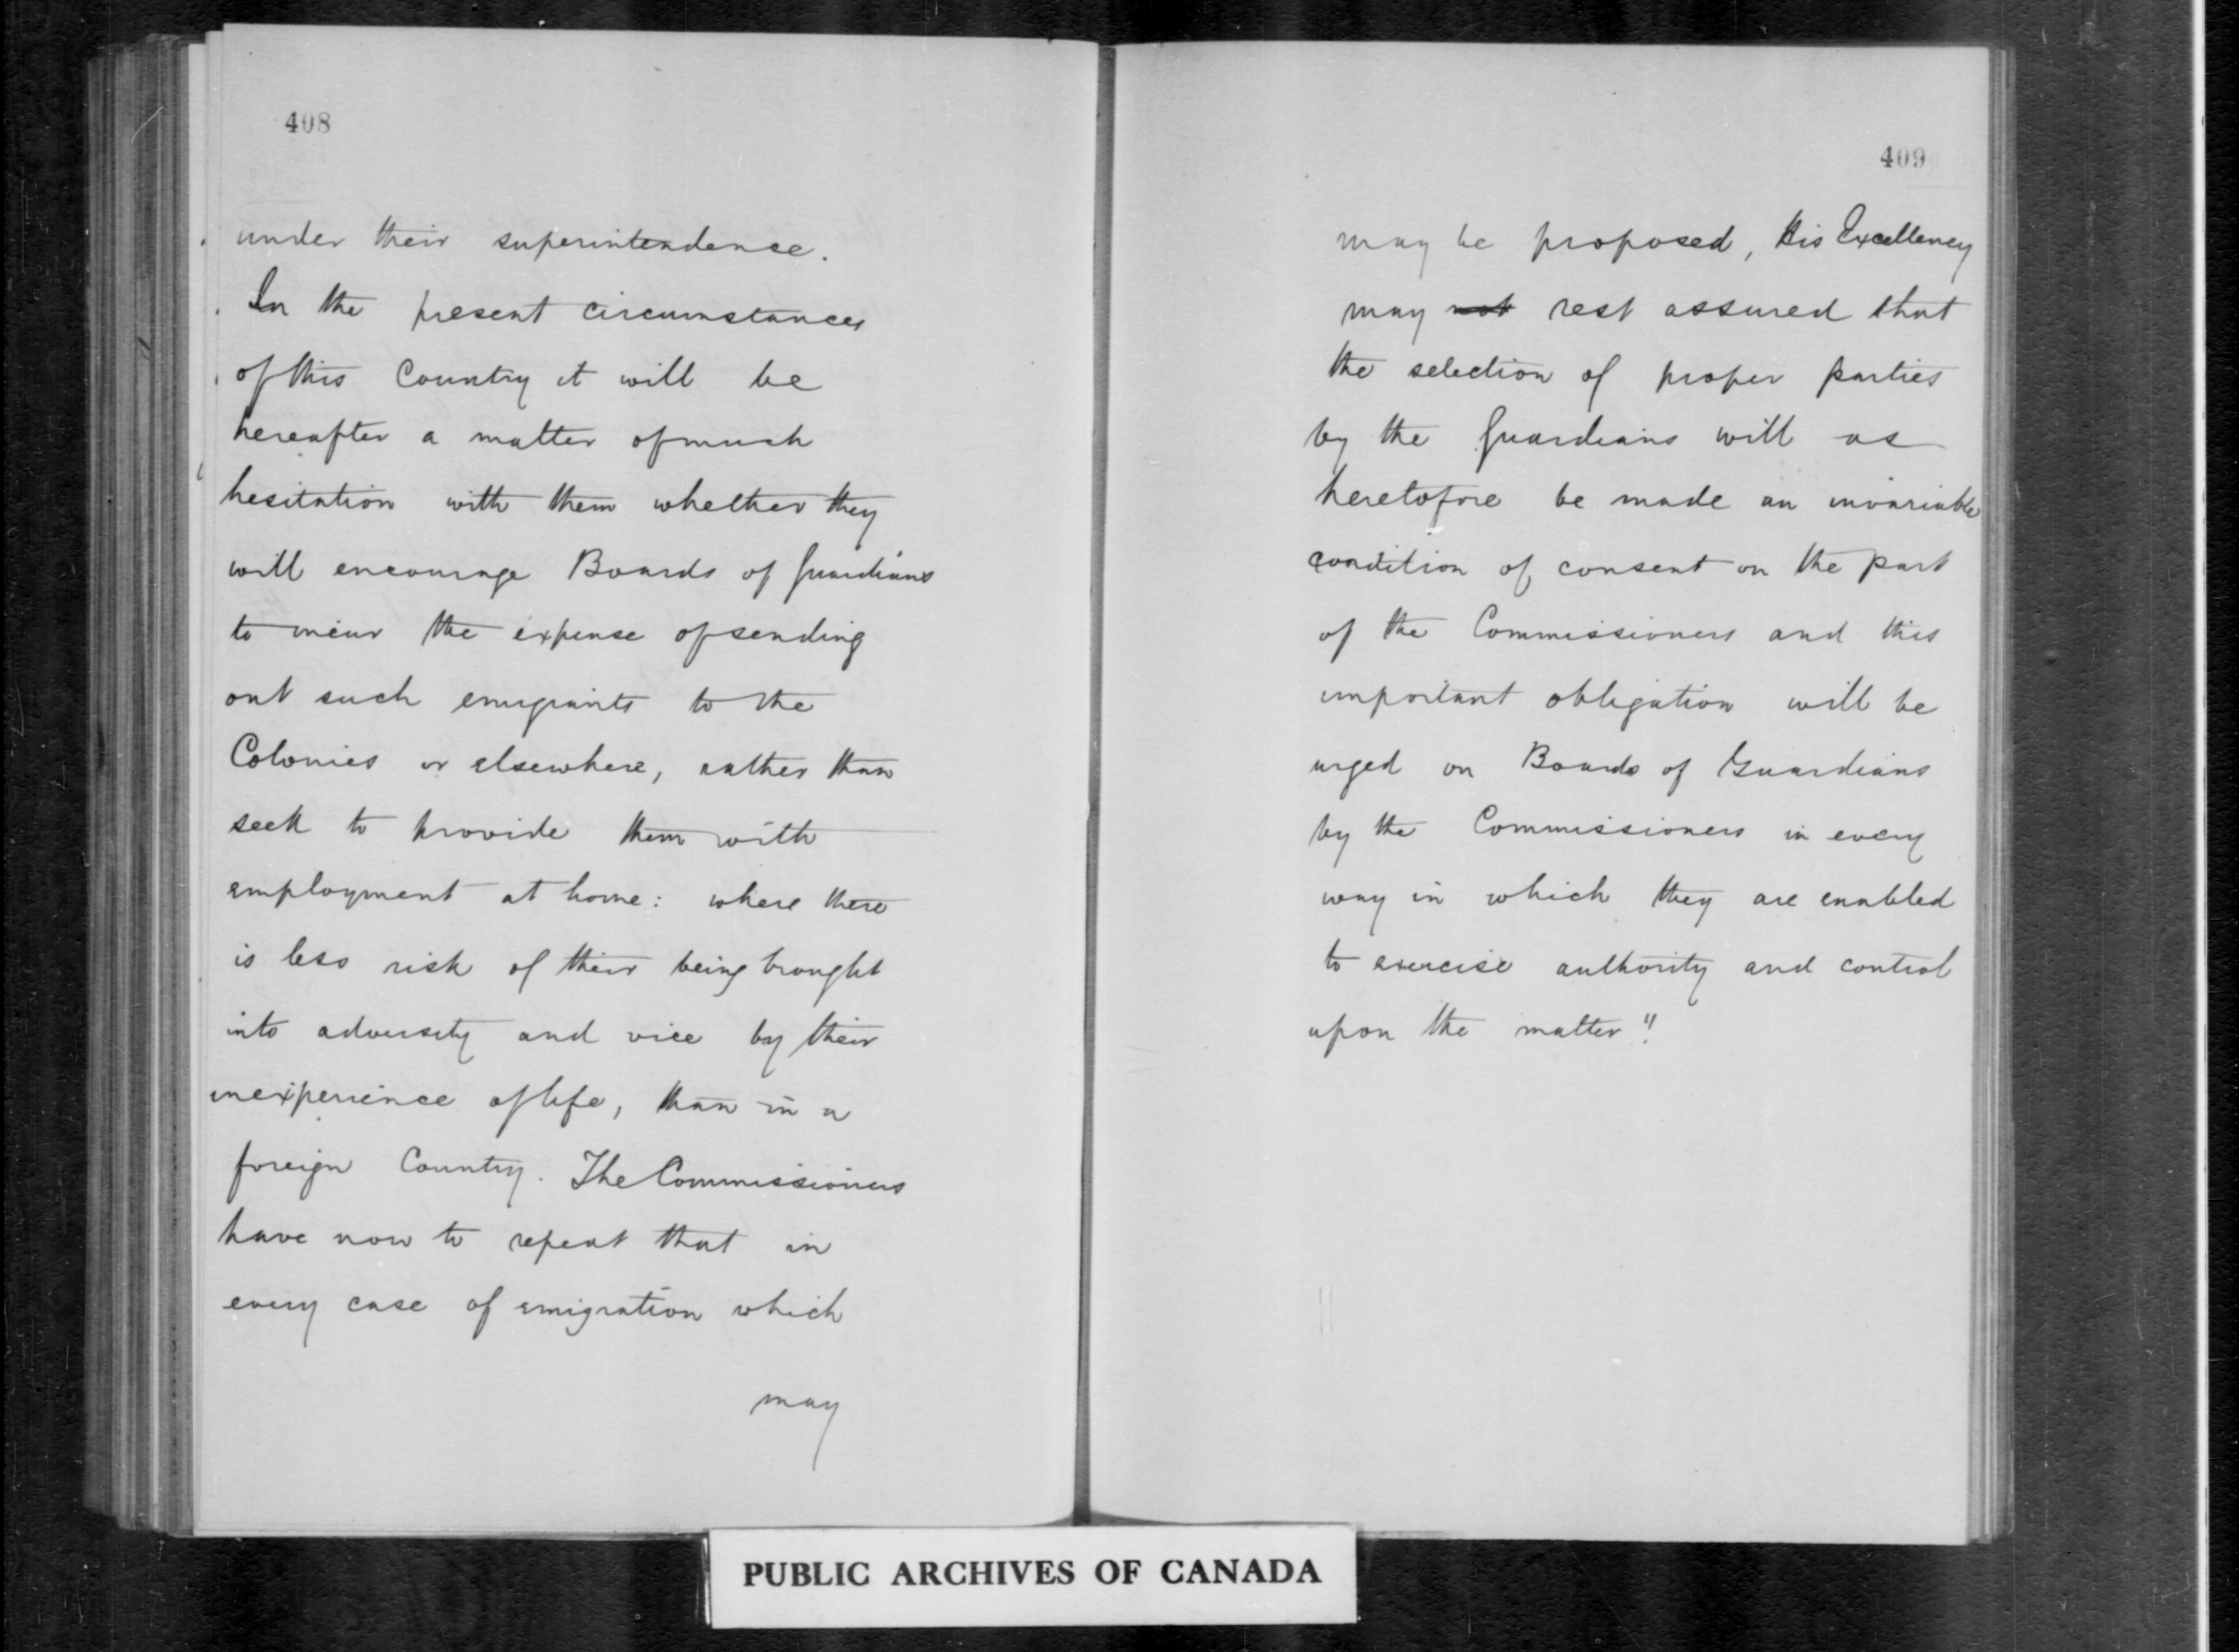 408
under their superintendence.
In the present circumstances
of this Country it will be
hereafter a matter of much
hesitation with them whether they
will encourage Boards of Guardians
to incur the expense of sending
out such emigrants to the
Colonies or elsewhere, rather than
seek to provide them with
employment at home: where there
is less risk of their being brought
into adversity and vice by their
inexperience of life, than in a
foreign Country. The Commissioners
have now to repeat that in
every case of emigration which
may
409
may be proposed, His Excellency
may not rest assured that
the selection of proper parties
by the Guardians will as
heretofore be made an invariable
condition of consent on the part
of the Commissioners and this
important obligation will be
urged on Boards of Guardians
by the Commissioners in every
way in which they are enabled
to exercise authority and control
upon the matter."
PUBLIC ARCHIVES OF CANADA